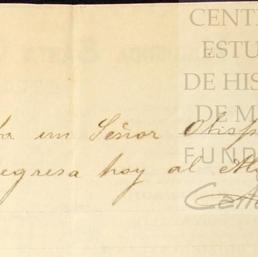 CENT
ESTU
DE HIS
DE M
FUND
un Señor Obisp
egresa hoy al